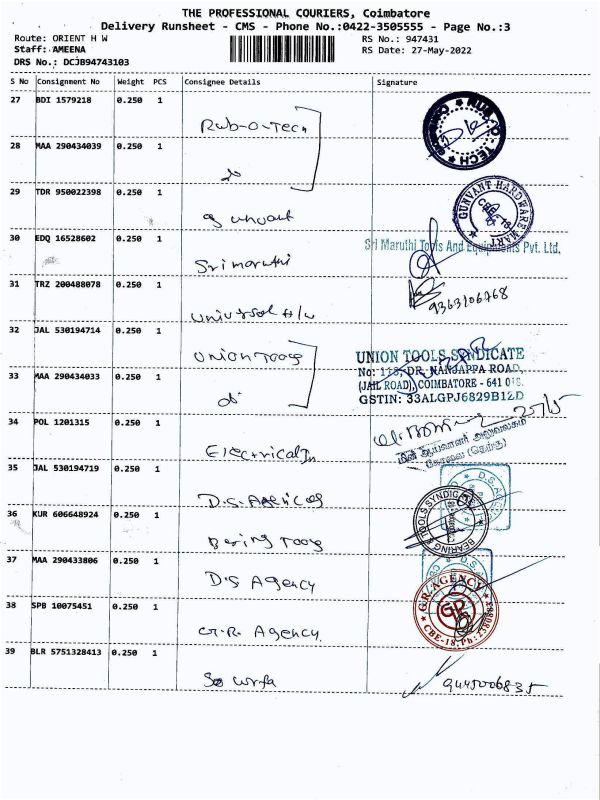 THE PROFESSIONAL COURIERS, Coimbatore
Delivery Runsheet - CMS - Phone No.:0422-3505555 - Page No.:3
Route: ORIENT H W
RS No.: 947431
Staff: AMEENA
RS Date: 27-May-2022
DRS No.: DCJB94743103
S No Consignment No Weight PCS Consignee Details Signature
27 BDI 1579218 0.250 1 Rub-O-Tech
28 MAA 290434039 0.250 1
29 TDR 950022398 0.250 1 Gunvant
GUNVANT HARDWARE MART
30 EDQ 16528602 0.250 1 Sri maruthi
Sri Maruthi Tools And Equipments Pvt. Ltd.
31 TRZ 200488078 0.250 1 Universal H/w
9363106768
32 JAL 530194714 0.250 1 Union Tools
UNION TOOLS SYNDICATE
No: 118, DR. NANJAPPA ROAD,
(JAIL ROAD), COIMBATORE - 641 018.
GSTIN: 33ALGPJ6829B1ZD
33 MAA 290434033 0.250 1
34 POL 1201315 0.250 1 Electrical In
மின் ஆய்வாளர் அலுவலகம்
கோவை (தெற்கு)
35 JAL 530194719 0.250 1 D.S. Agencies
D.S. AGENCY
36 KUR 606648924 0.250 1 Bering Tools
BEARING & TOOLS SYNDICATE
37 MAA 290433806 0.250 1 D.S Agency
38 SPB 10075451 0.250 1 G.R. Agency
G.R. AGENCY
GR
39 BLR 5751328413 0.250 1
9445006835